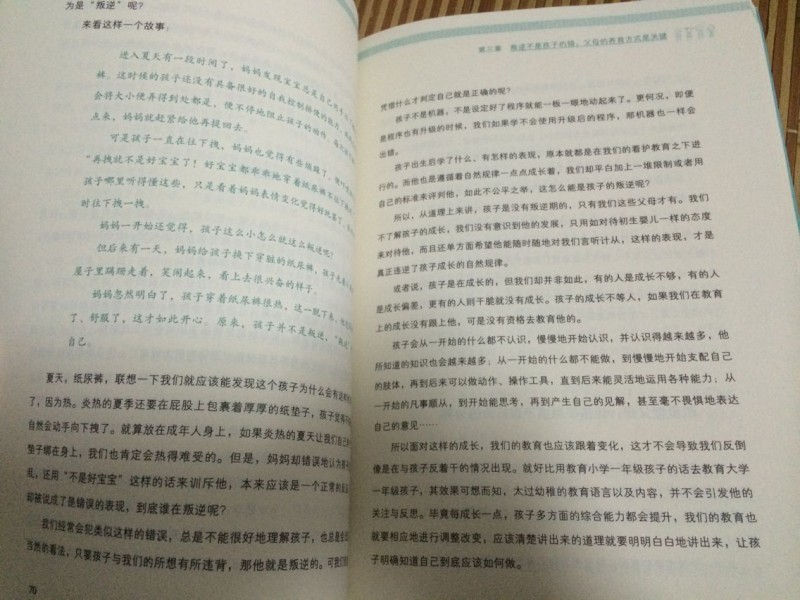 为是“叛逆”呢？
来看这样一个故事。
进入夏天有一段时间了，妈妈发现宝宝总是自己
裤。这时候的孩子还没有具备很好的自我控制排便的能力，
会将大小便弄得到处都是，便不停地阻止孩子的动作，
点来，妈妈就赶紧给他再提回去。
可是孩子一直在往下拽，妈妈也觉得有些烦躁了，便
“再拽就不是好宝宝了！好宝宝都乖乖地穿着纸尿裤不
孩子哪里听得懂这些，只是看着妈妈表情变化觉得好玩罢了，
时往下拽一拽。
妈妈一开始还觉得，孩子这么小怎么就这么叛逆呢！
但后来有一天，妈妈给孩子换下穿脏的纸尿裤，孩子光着
屋子里蹒跚走着，笑闹起来，看上去很兴奋的样子。
妈妈忽然明白了，孩子穿着纸尿裤很热，这一脱下来，
了、舒服了，这才如此开心。原来，孩子并不是叛逆，“叛逆”
自己。
夏天，纸尿裤，联想一下我们就应该能发现这个孩子为什么会有这样的
了，因为热。炎热的夏季还要在屁股上包裹着厚厚的纸垫子，孩子觉得不
自然会动手向下拽了。就算放在成年人身上，如果炎热的夏天让我们自己
垫子绑在身上，我们也肯定会热得难受的。但是，妈妈却错误地认为孩子
乱，还用“不是好宝宝”这样的话来训斥他，本来应该是一个正常的反应
却被说成了是错误的表现，到底谁在叛逆呢？
我们经常会犯类似这样的错误，总是不能很好地理解孩子，也总是
当然的看法，只要孩子与我们的所想有所违背，那他就是叛逆的。可我们
70
第三章 叛逆不是孩子的错，父母的教育方式是关键
凭借什么才判定自己就是正确的呢？
孩子不是机器，不是设定好了程序就能一板一眼地动起来了。更何况，即便
是程序也有升级的时候，我们如果学不会使用升级后的程序，那机器也一样会
出错。
孩子出生后学了什么、有怎样的表现，原本就都是在我们的看护教育之下进
行的。而他也是遵循着自然规律一点点成长着，我们却平白加上一堆限制或者用
自己的标准来评判他，如此不公平之举，这怎么能是孩子的叛逆呢？
所以，从道理上来讲，孩子是没有叛逆期的，只有我们这些父母才有。我们
不了解孩子的成长，我们没有意识到他的发展，只用如对待初生婴儿一样的态度
来对待他，而且还单方面希望他能随时随地对我们言听计从，这样的表现，才是
真正违逆了孩子成长的自然规律。
或者说，孩子是在成长的，但我们却并非如此，有的人是成长不够，有的人
是成长偏差，更有的人则干脆就没有成长。孩子的成长不等人，如果我们在教育
上的成长没有跟上他，可是没有资格去教育他的。
孩子会从一开始的什么都不认识，慢慢地开始认识，并认识得越来越多，他
所知道的知识也会越来越多；从一开始的什么都不能做，到慢慢地开始支配自己
的肢体，再到后来可以做动作、操作工具，直到后来能灵活地运用各种能力；从
一开始的凡事顺从，到开始能思考，再到产生自己的见解，甚至毫不畏惧地表达
自己的意见……
所以面对这样的成长，我们的教育也应该跟着变化，这才不会导致我们反倒
像是在与孩子反着干的情况出现。就好比用教育小学一年级孩子的话去教育大学
一年级孩子，其效果可想而知，太过幼稚的教育语言以及内容，并不会引发他的
关注与反思。毕竟每成长一点，孩子多方面的综合能力都会提升，我们的教育也
就要相应地进行调整改变，应该清楚讲出来的道理就要明明白白地讲出来，让孩
子明确知道自己到底应该如何做。